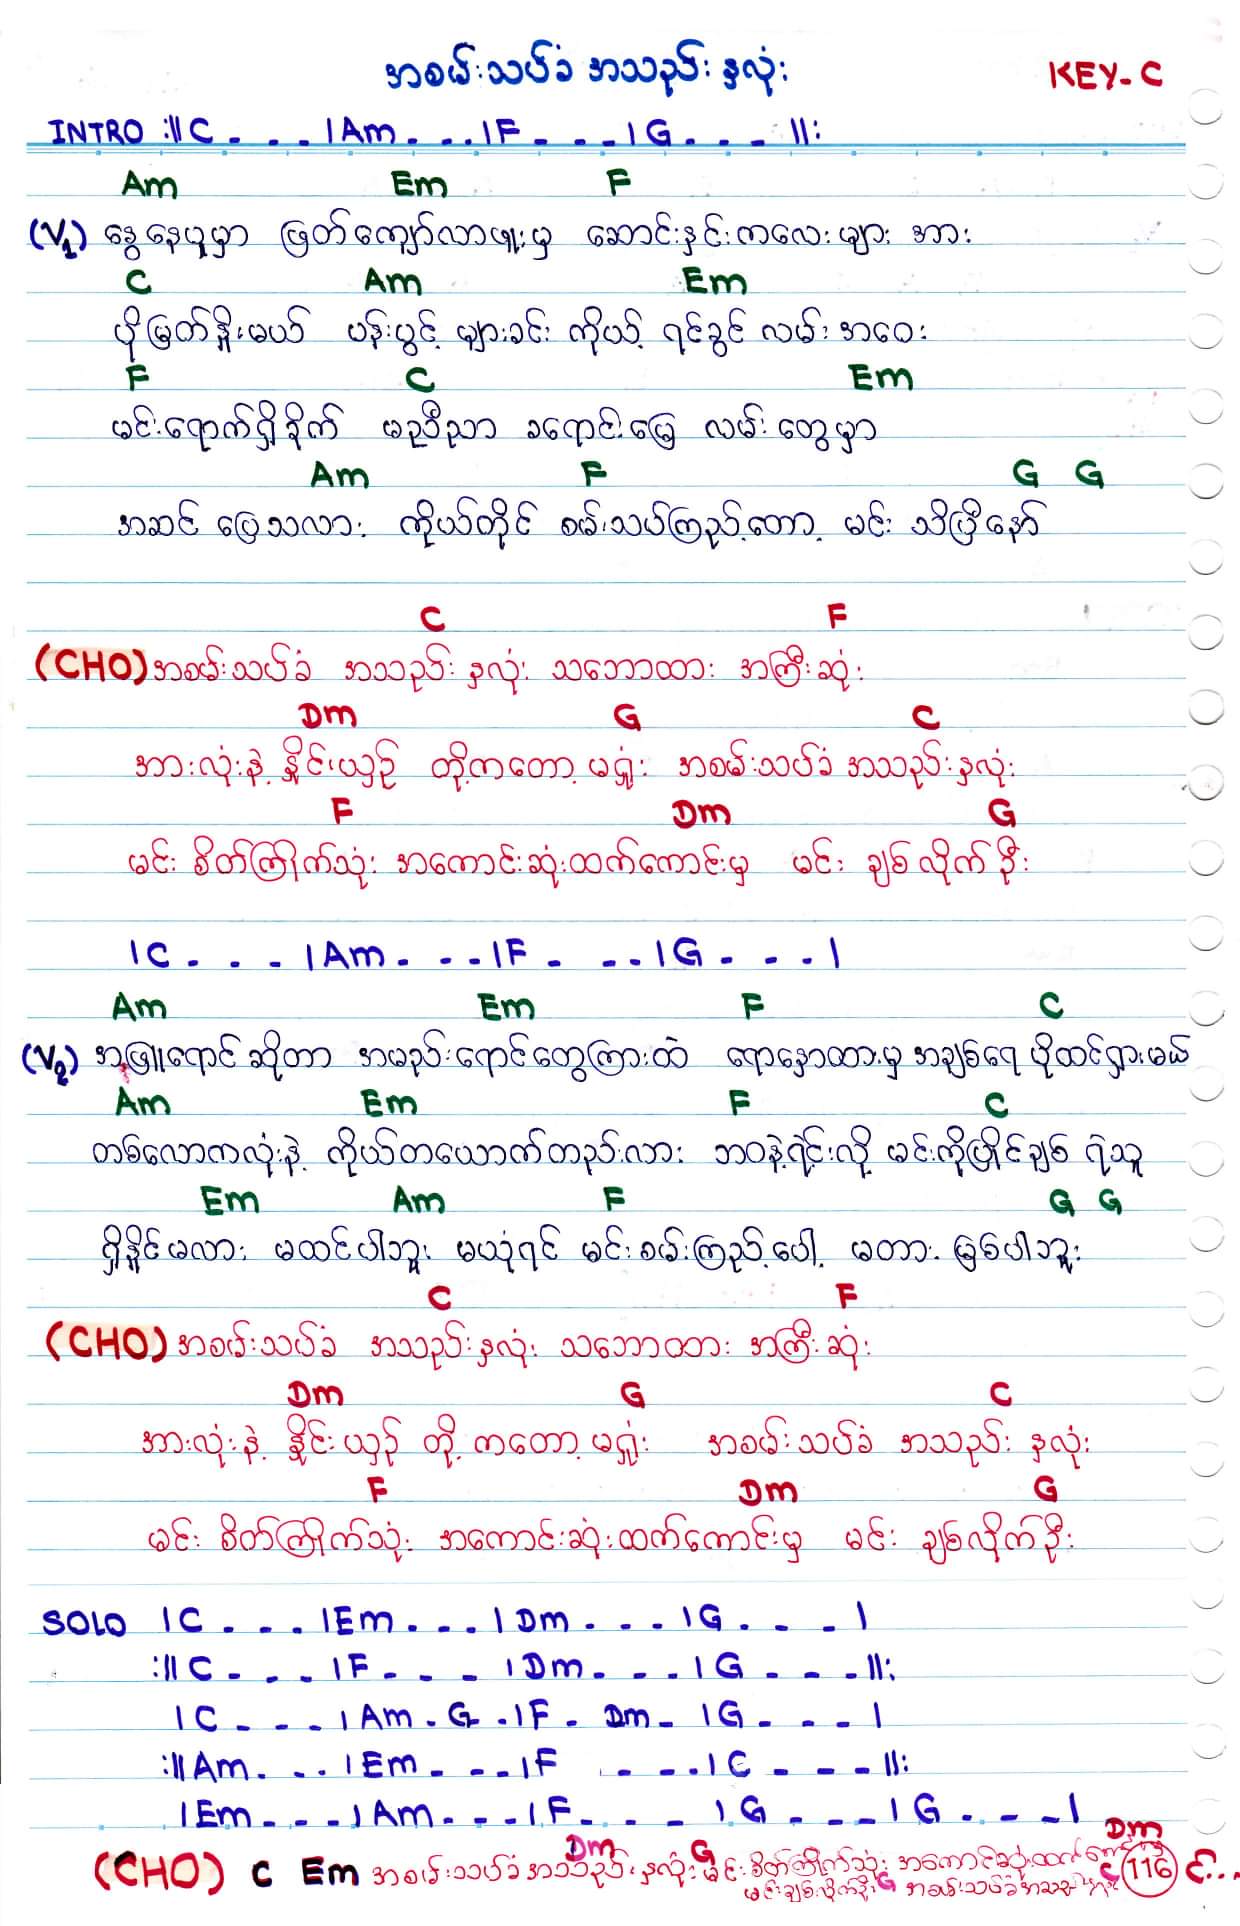 အစမ်းသပ်ခံ အသည်းနှလုံး KEY-C
INTRO :||C - - - |Am - - - |F - - - |G - - - ||:
Am Em F
(V1) နွေနေပူမှာ ဖြတ်ကျော်လာဖူးမှ ဆောင်းနှင်းကလေးများ အား
C Am Em
ပိုမြတ်နိုးမယ် ပန်းပွင့် များခင်း ကိုယ့် ရင်ခွင် လမ်းအဝေး
F C Em
မင်းရောက်ရှိခိုက် မညီညာ ခရောင်းမြေ လမ်းတွေမှာ
Am F G G
အဆင် ပြေသလား ကိုယ်တိုင် စမ်းသပ်ကြည့်တော့ မင်း သိပြီနော်
C F
(CHO) အစမ်းသပ်ခံ အသည်းနှလုံး သဘောထား အကြီးဆုံး
Dm G C
အားလုံးနဲ့ နှိုင်းယှဉ် တို့ကတော့ မရှုံး အစမ်းသပ်ခံ အသည်းနှလုံး
F Dm G
မင်း စိတ်ကြိုက်သုံး အကောင်းဆုံးထက်ကောင်းမှ မင်း ချစ်လိုက်ဦး
|C - - - |Am - - - |F - - - |G - - - |
Am Em F C
(V2) အဖြူရောင်ဆိုတာ အမည်းရောင်တွေကြားထဲ ရောနှောထားမှ အချစ်ရေ ပိုထင်ရှားမယ်
Am Em F C
တစ်လောကလုံးနဲ့ ကိုယ်တယောက်တည်းလား ဘဝနဲ့ရင်းလို့ မင်းကိုပြိုင်ချစ် ရဲသူ
Em Am F G G
ရှိနိုင်မလား မထင်ပါဘူး မယုံရင် မင်းစမ်းကြည့်ပေါ့ မတား မြစ်ပါဘူး
C F
(CHO) အစမ်းသပ်ခံ အသည်းနှလုံး သဘောထား အကြီးဆုံး
Dm G C
အားလုံးနဲ့ နှိုင်းယှဉ် တို့ ကတော့ မရှုံး အစမ်းသပ်ခံ အသည်း နှလုံး
F Dm G
မင်း စိတ်ကြိုက်သုံး အကောင်းဆုံးထက်ကောင်းမှ မင်း ချစ်လိုက်ဦး
SOLO |C - - - |Em - - - |Dm - - - |G - - - |
:||C - - - |F - - - |Dm - - - |G - - - ||:
|C - - - |Am - G - |F - Dm - |G - - - |
:||Am - - - |Em - - - |F - - - - |C - - - ||:
|Em - - - |Am - - - |F - - - - |G - - - |G - - - |
Dm G Dm
(CHO) C Em အစမ်းသပ်ခံ အသည်းနှလုံး မင်းစိတ်ကြိုက်သုံး အကောင်းဆုံးထက်
မင်းချစ်လိုက်ဦး G အစမ်းသပ်ခံ C 116